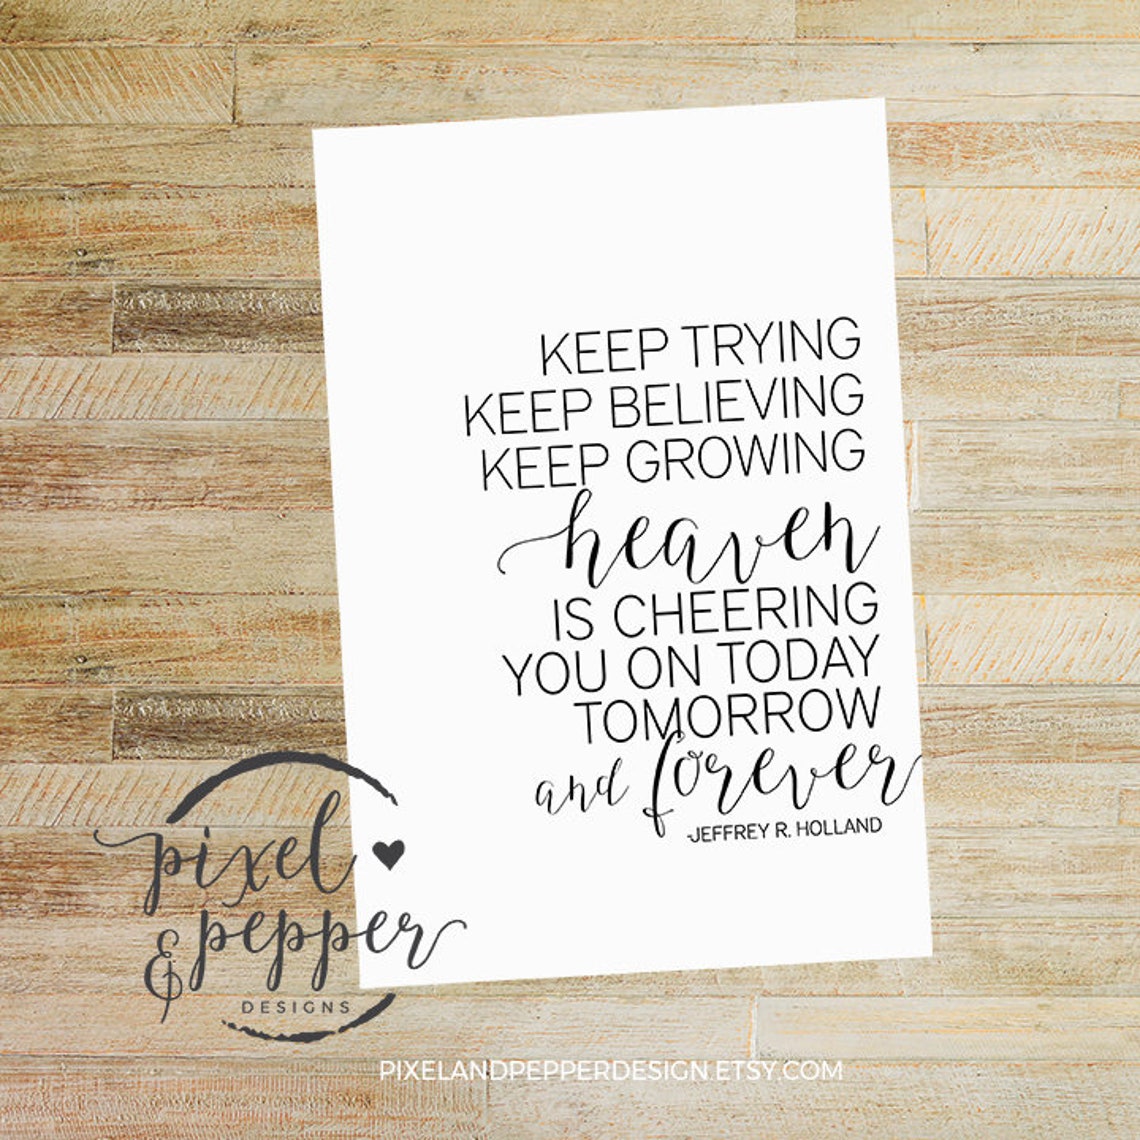 KEEP TRYING
KEEP BELIEVING
KEEP GROWING
heaven
IS CHEERING
YOU ON TODAY
TOMORROW
and forever
-JEFFREY R. HOLLAND
pixel
& pepper
DESIGNS
PIXELANDPEPPERDESIGN.ETSY.COM